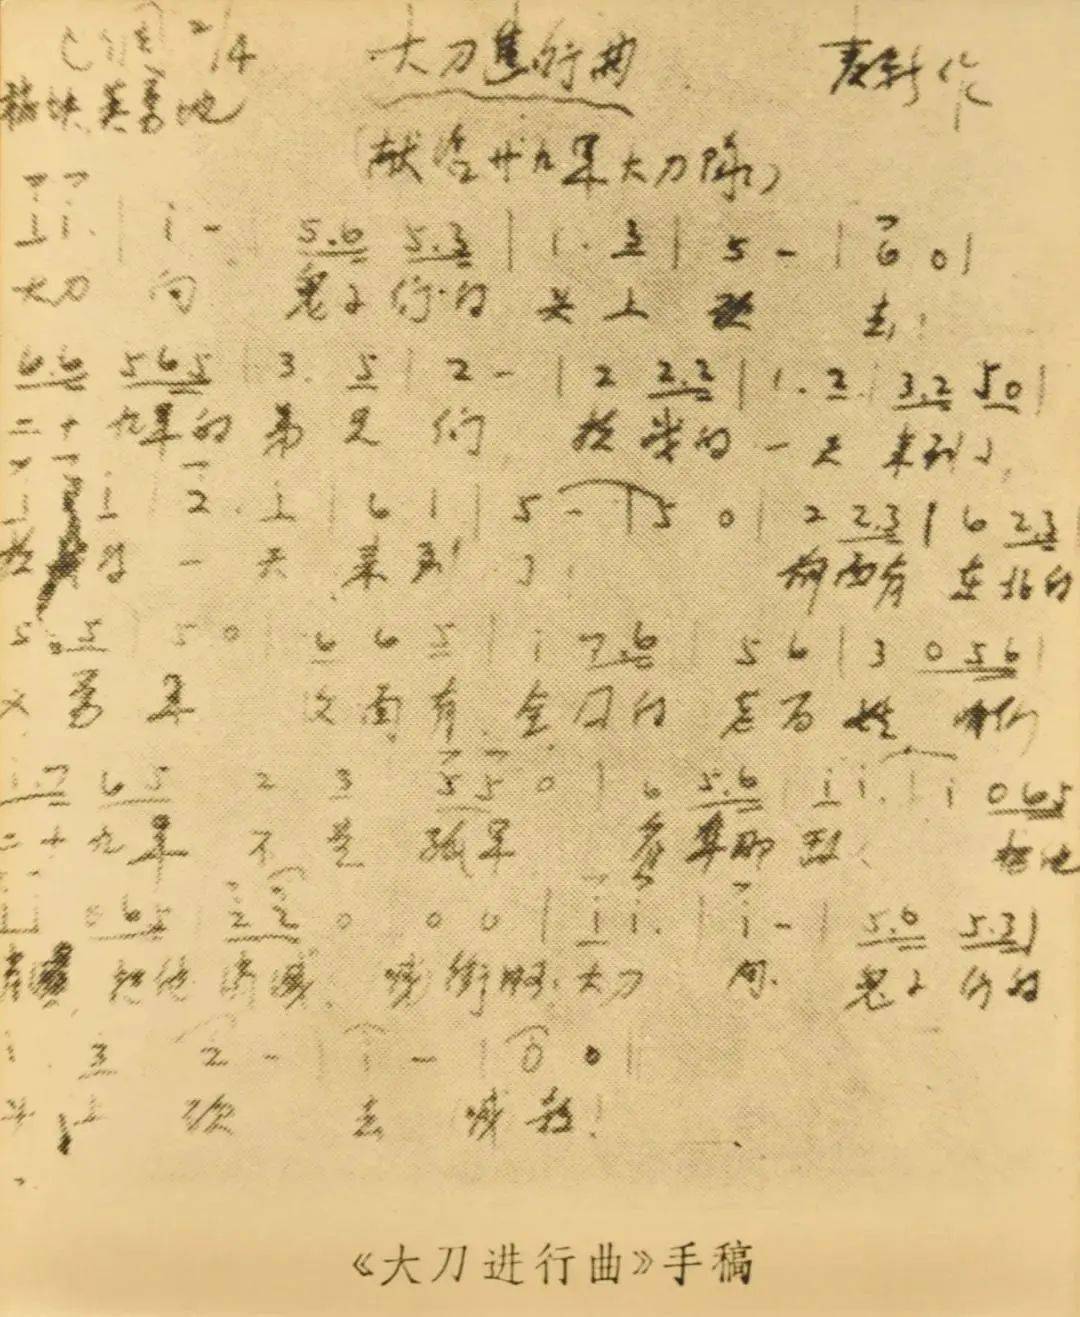 C调 2/4 大刀進行曲 麦新作
稍快 英勇地
(献给廿九军大刀队)
i i. | i - | 5.6 5.3 | 1. 3 | 5 - | 6 0 |
大刀 向 鬼子们的 头上 砍 去!
6.6 565 | 3. 5 | 2 - | 2 2.2 | 1. 2 | 3.2 50 |
二十九军的弟兄们 抗战的一天来到了
i i | 2. i | 6 1 | 5 - | 5 0 | 2 2.3 | 6 2.3
抗战的一天来到了 前面有东北的
5. 5 | 5 0 | 6 6 5 | i 7.6 | 5 6 | 3 056 |
义勇军 后面有全国的老百姓 咱们
i.7 65 2 3 55 0 | 6 5.6 | i i. | i 065
二十九军不是孤军 看准那敌人 把他
065 | 22 0 0 0 | i i. | i - | 5.6 5.3 |
消灭 把他消灭 喊 冲啊 大刀 向 鬼子们的
1. 3 2 - | i - | 0 0 |
头上 砍 去 喊 杀!
《大刀进行曲》手稿